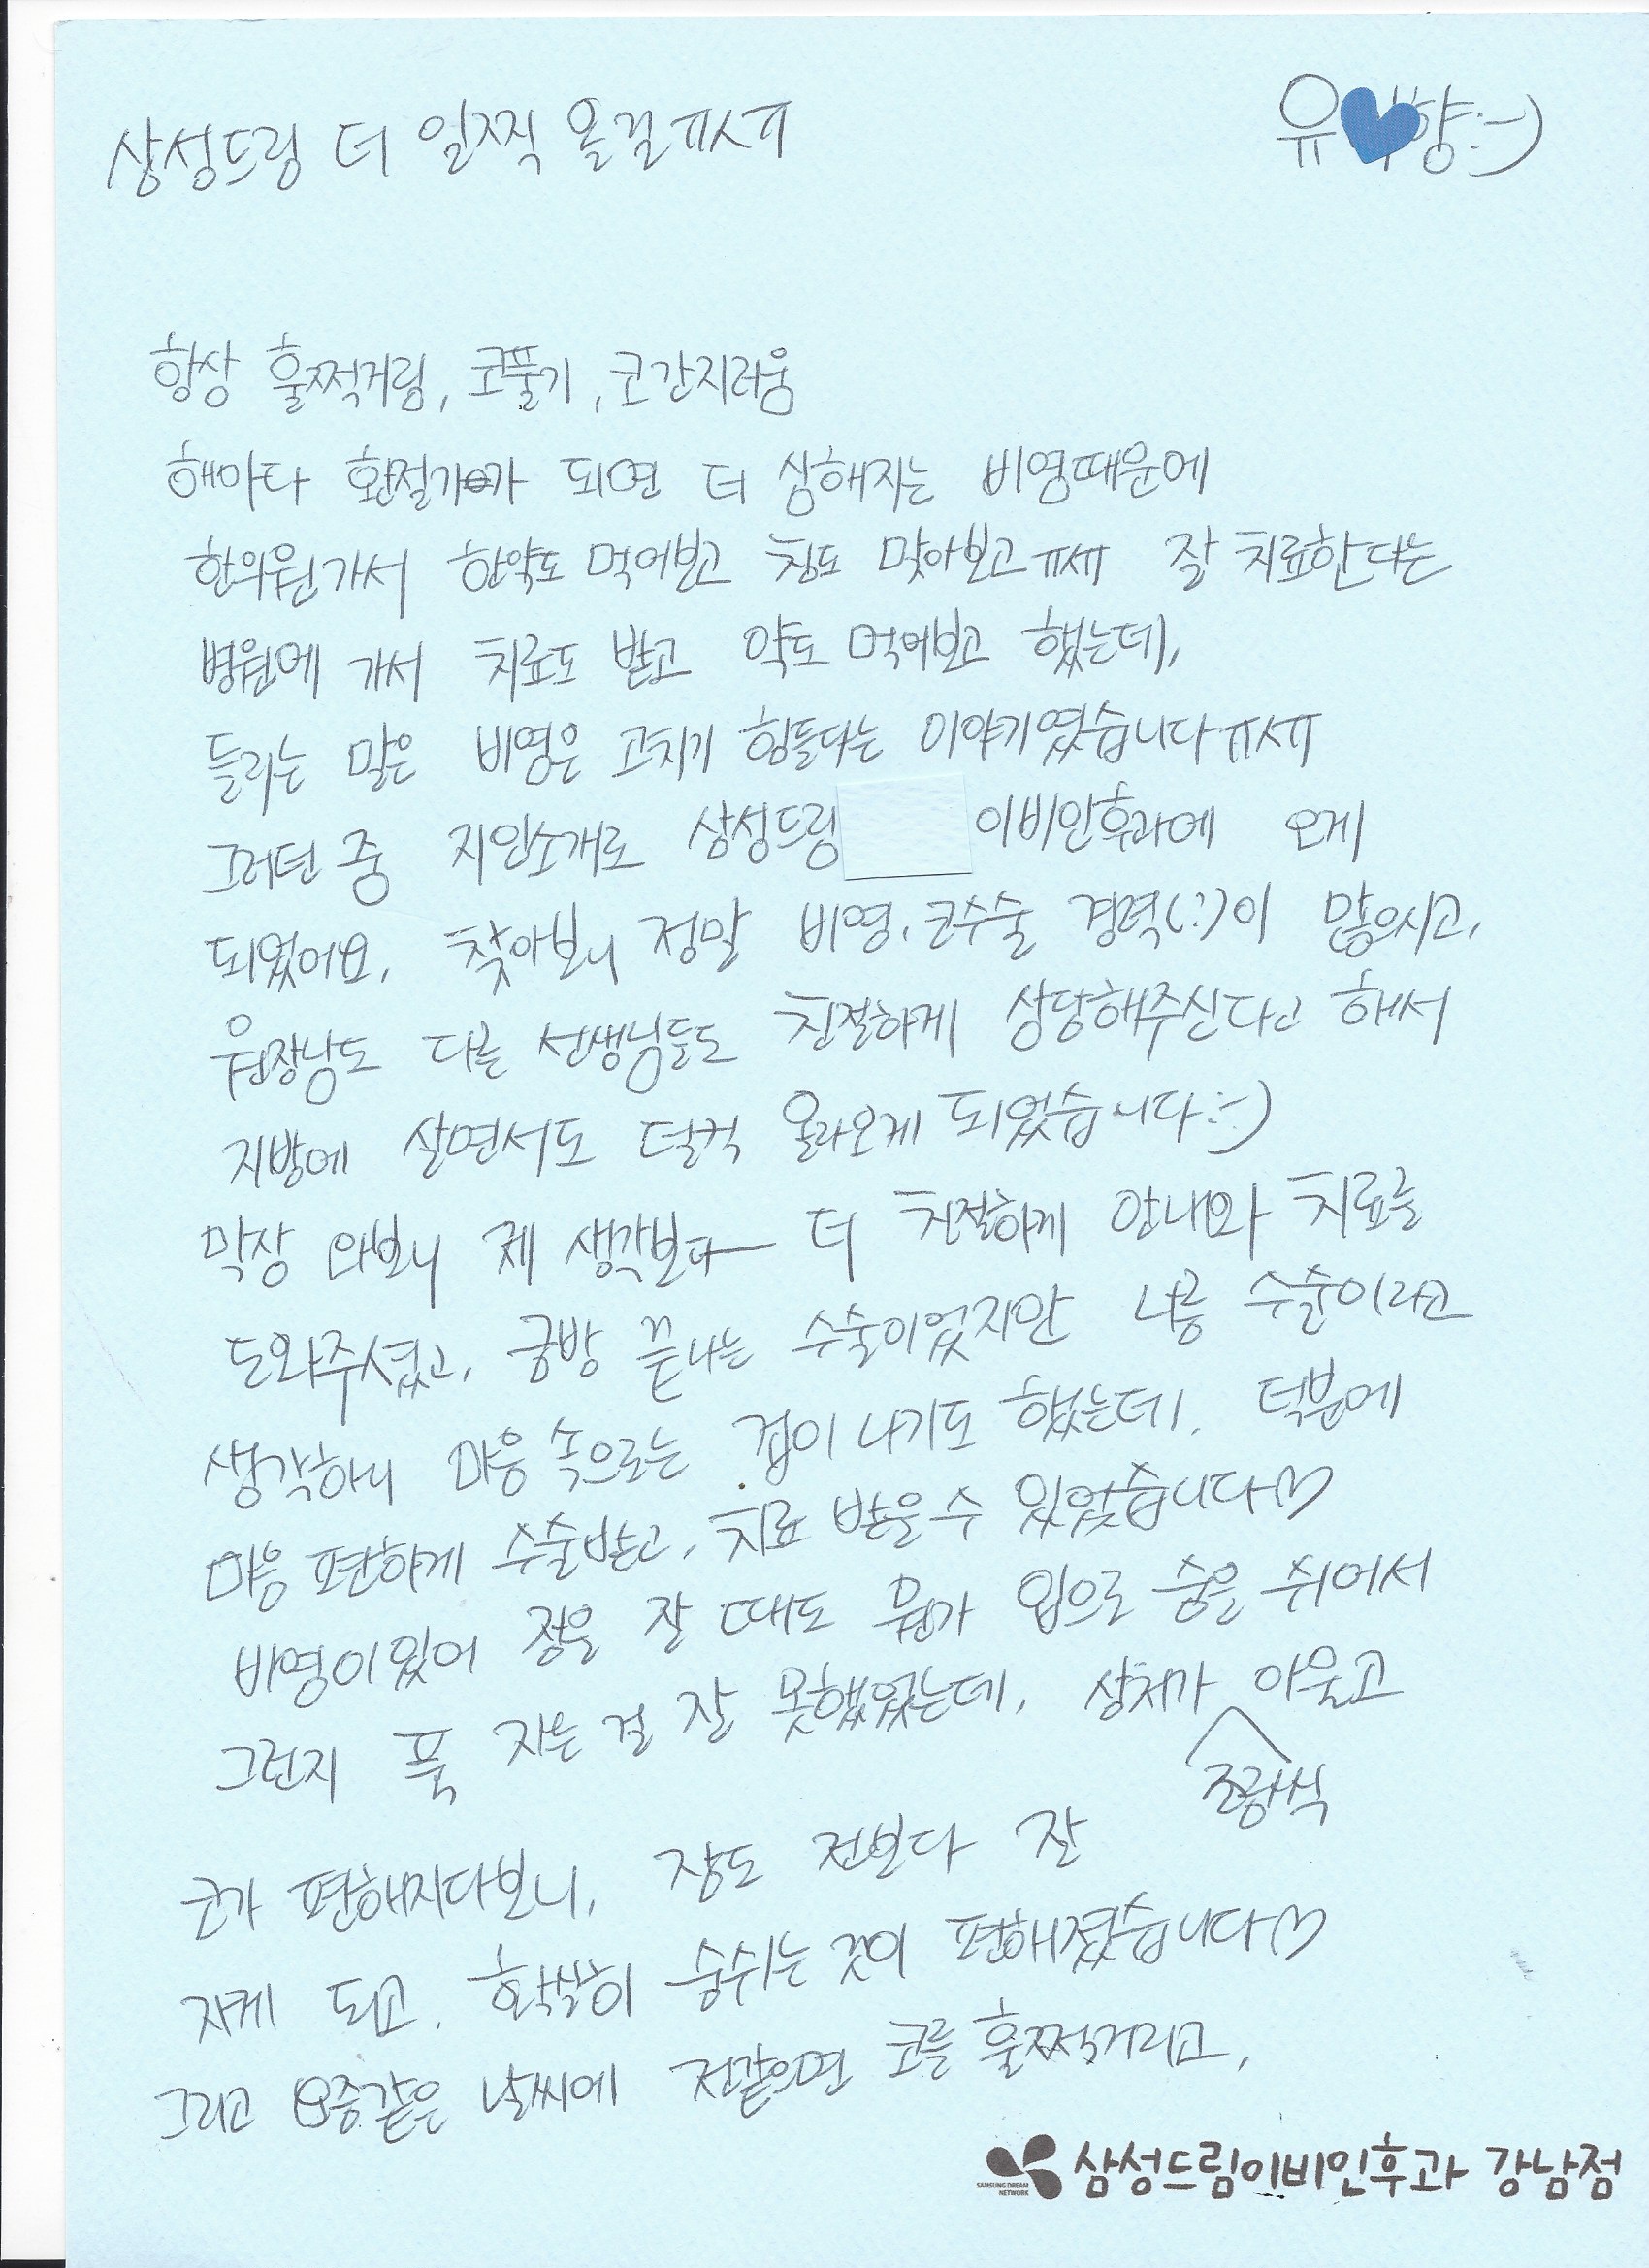 삼성드림 더 일찍 올걸ㅠㅅㅠ
유 향:-)
항상 훌쩍거림, 코풀기, 코간지러움
해마다 환절기가 되면 더 심해지는 비염때문에
한의원가서 한약도 먹어보고 침도 맞아보고ㅠㅅㅠ 잘 치료한다는
병원에 가서 치료도 받고 약도 먹어보고 했는데,
들리는 말은 비염은 고치기 힘들다는 이야기였습니다ㅠㅅㅠ
그러던 중 지인소개로 삼성드림 이비인후과에 오게
되었어요. 찾아보니 정말 비염.코수술 경력(:)이 많으시고,
원장님도 다른 선생님들도 친절하게 상담해주신다고 해서
지방에 살면서도 덜컥 올라오게 되었습니다:-)
막상 와보니 제 생각보다 더 친절하게 안내와 치료를
도와주셨고, 금방 끝나는 수술이었지만 나름 수술이라고
생각하니 마음 속으로는 겁이 나기도 했는데, 덕분에
마음 편하게 수술받고, 치료 받을 수 있었습니다♡
비염이 있어 잠을 잘 때도 뭔가 입으로 숨을 쉬어서
그런지 푹 자는 걸 잘 못했었는데, 상처가 아물고
조금씩
코가 편해지다보니, 잠도 전보다 잘
자게 되고, 확실히 숨쉬는 것이 편해졌습니다♡
그리고 요즘같은 날씨에 전같으면 코를 훌쩍거리고,
SAMSUNG DREAM
NETWORK
삼성드림이비인후과 강남점